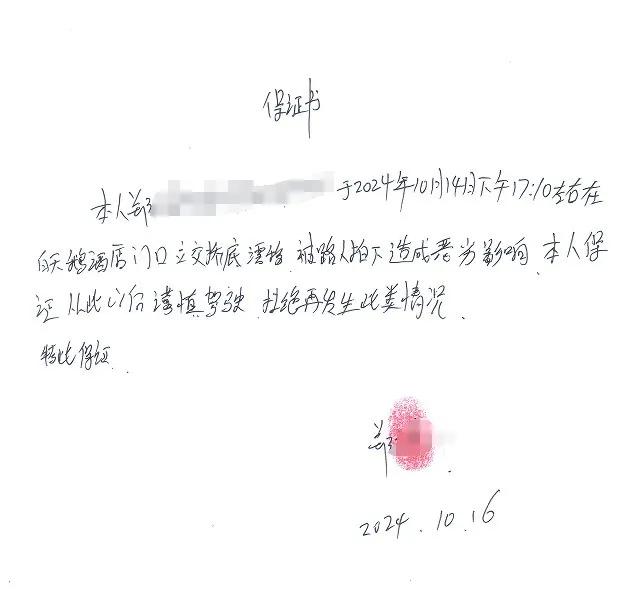 保证书
本人郑 于2024年10月14日下午17:10左右在
白天鹅酒店门口立交桥底漂移 被路人拍下造成恶劣影响 本人保
证 从此以后谨慎驾驶 杜绝再发生此类情况.
特此保证.
郑
2024.10.16